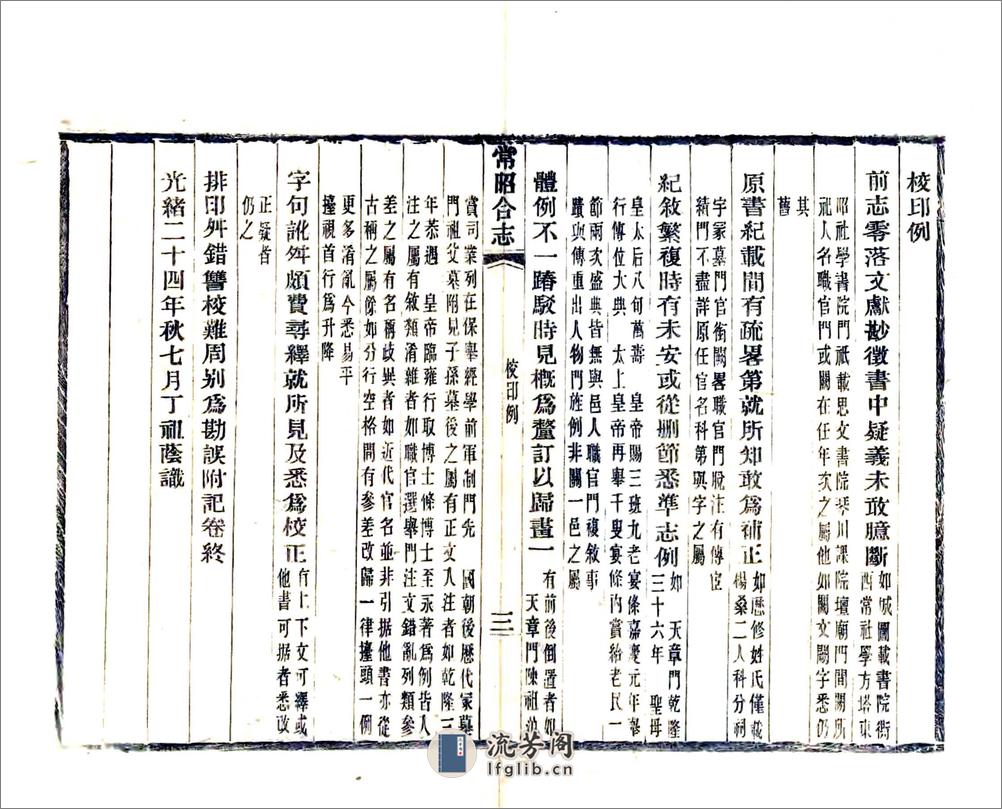 校印例
前志零落文獻尠徵書中疑義未敢臆斷
如城圖載書院街
西常社學方塔東
昭社學書院門祇載思文書院琴川課院壇廟門間闕所
祀人名職官門或闕在任年次之屬他如闕文闕字悉仍
其
舊
原書紀載間有疏畧第就所知敢爲補正
如歷修姓氏僅載
楊桑二人科分祠
宇冢墓門官銜闕畧職官門脫注有傳宦
績門不盡詳原任官名科第與字之屬
紀敘繁複時有未安或從删節悉準志例
如 天章門乾隆
三十六年 聖母
皇太后八旬萬壽 皇帝賜三班九老宴條嘉慶元年舉
行傳位大典 太上皇帝再舉千叟宴條內賞給老民一
節兩次盛典皆無與邑人職官門複敘事
蹟與傳重出人物門旌例非關一邑之屬
體例不一踳駁時見概爲釐訂以歸畫一
有前後倒置者如
天章門陳祖范
常昭合志
校印例
三
賞司業列在保舉經學前軍制門先 國朝後歷代冢墓
門祖父墓附見子孫墓後之屬有正文入注者如乾隆三
年恭遇 皇帝臨雍行取博士條博士至永著爲例皆入
注之屬有敘類淆雜者如職官選舉門注文錯亂列類參
差之屬有名稱歧異者如近代官名並非引据他書亦從
古稱之屬餘如分行空格間有參差改歸一律擡頭一例
更多淆亂今悉易平
擡視首行爲升降
字句訛舛頗費尋繹就所見及悉爲校正
有上下文可繹或
他書可據者悉改
正疑者
仍之
排印舛錯讐校難周别爲勘誤附記卷終
光緒二十四年秋七月丁祖蔭識
流芳阁
lfglib.cn